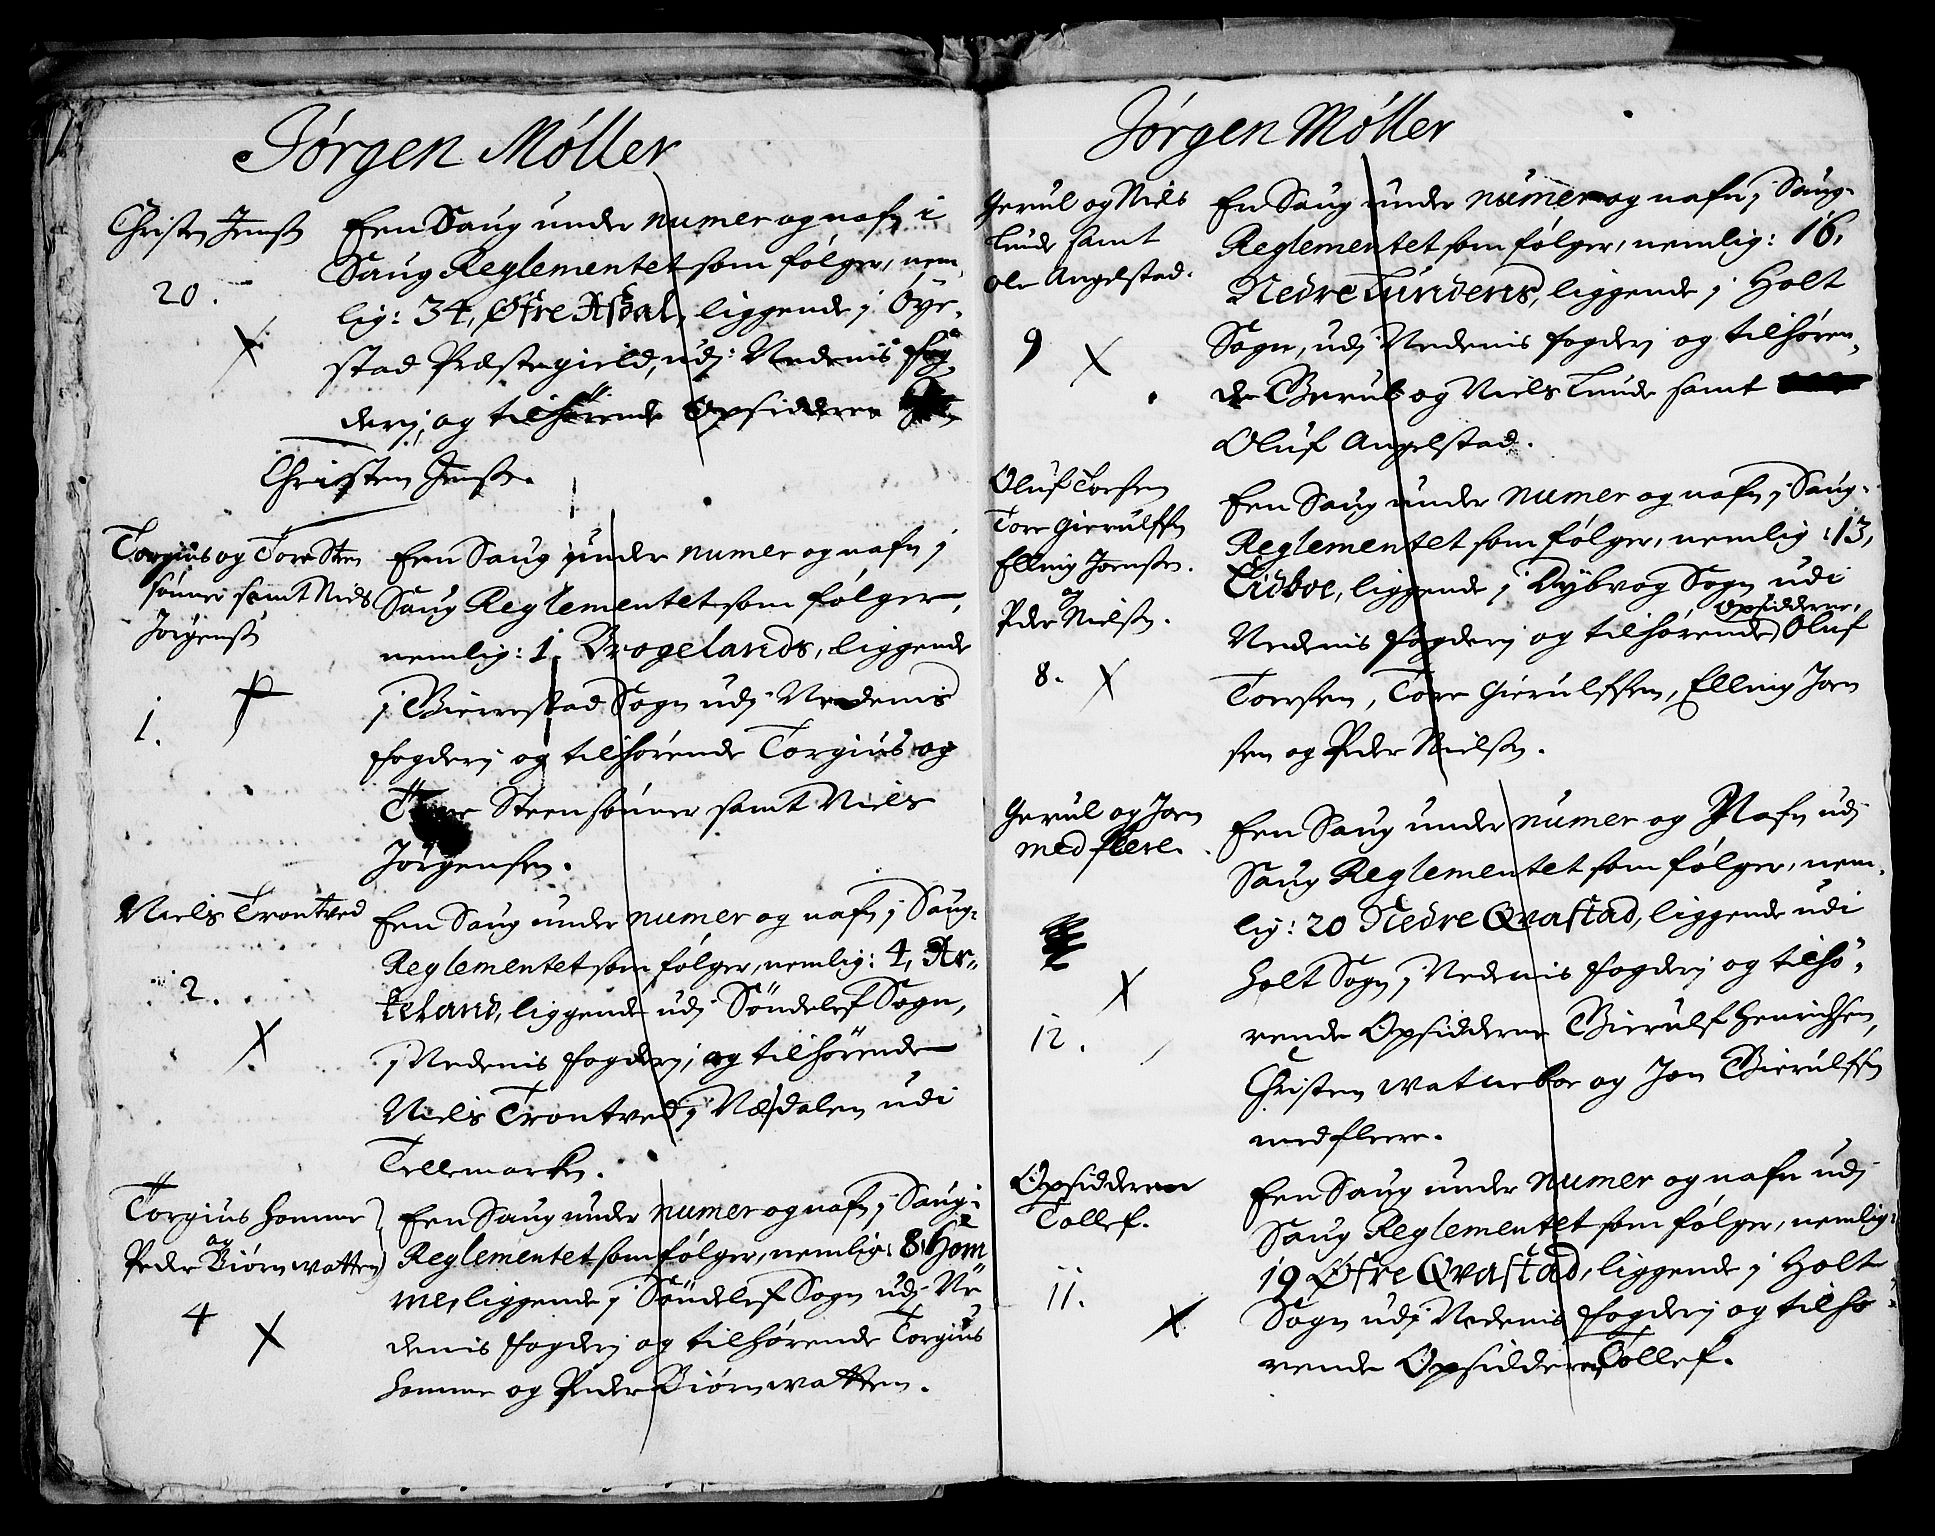 Jørgen Møller
Christen Jenss:
20.
Een Saug under numer og nafn i
Saug Reglementet som følger, nem-
lig: 34, Øfre Assdal, liggende j Öye-
stad Præstegield, udj Nedenis fog-
derj, og tilhørende Opsidderen
Christen Jenss:
Torgius og Tore Steen
sønner samt Niels
Jörgenss:
1.
Een Saug under numer og nafn j
Saug Reglementet som følger,
nemlig: 1, Vrogelands, liggende
j Gierrestad Sogn udj Nedenis
fogderj og tilhørende Torgius og
Tore Steensönner samt Niels
Jörgensen.
Niels Trontved
2.
Een Saug under numer og nafn j Saug-
Reglementet som følger, nemlig: 4, Ar-
teland, liggende udj Söndelef Sogn,
j Nedenis fogderj, og tilhörende
Niels Trontved j Næsdalen udi
Tellemarken.
Torgius Homme
og
Peder Biörnwatten
4
Een Saug under numer og nafn j Saug-
Reglementet som følger, nemlig: 8, Hom
me, liggende j Söndelef Sogn udj Ne
denis fogderj og tilhørende Torgius
Homme og Peder Biörnwatten.
Jørgen Møller
Gerul og Niels
Lunde samt
Ole Angelstad.
9
En Saug under numer og nafn j Saug-
Reglementet som følger, nemlig: 16,
Nedre Lundens, liggende j Holt
Sogn, udj Nedenis fogderj og tilhøren-
de Gierul og Niels Lunde samt
Oluf Angelstad.
Oluf Torsen
Tore Gierulfsen
Elling Joenssen.
og
Peder Nielsen.
8.
Een Saug under numer og nafn j Saug-
Reglementet som følger, nemlig: 13,
Eidboe, liggende j Dybvog Sogn udi
Opsidderne,
Nedenis fogderj og tilhørende Oluf
Torsen, Tore Gierulfsen, Elling Joen
sen og Peder Nielsen.
Gerul og Joen
med flere.
12.
Een Saug under numer og Nafn udj
Saug Reglementet som følger, nem-
lig: 20 Nedre Qvastad, liggende udi
Holt Sogn j Nedenis fogderj og tilhö-
rende Opsidderne Gierulf Henrichsen,
Christen Watneboe og Jon Gierulfsen
med flere.
Opsidderen
Tollef.
11.
Een Saug under numer og nafn udj
Saug Reglementet som følger, nemlig:
19 Øfre Qvastad, liggende j Holt
Sogn udj Nedenis fogderj og tilhø-
rende Opsidderen Tollef.